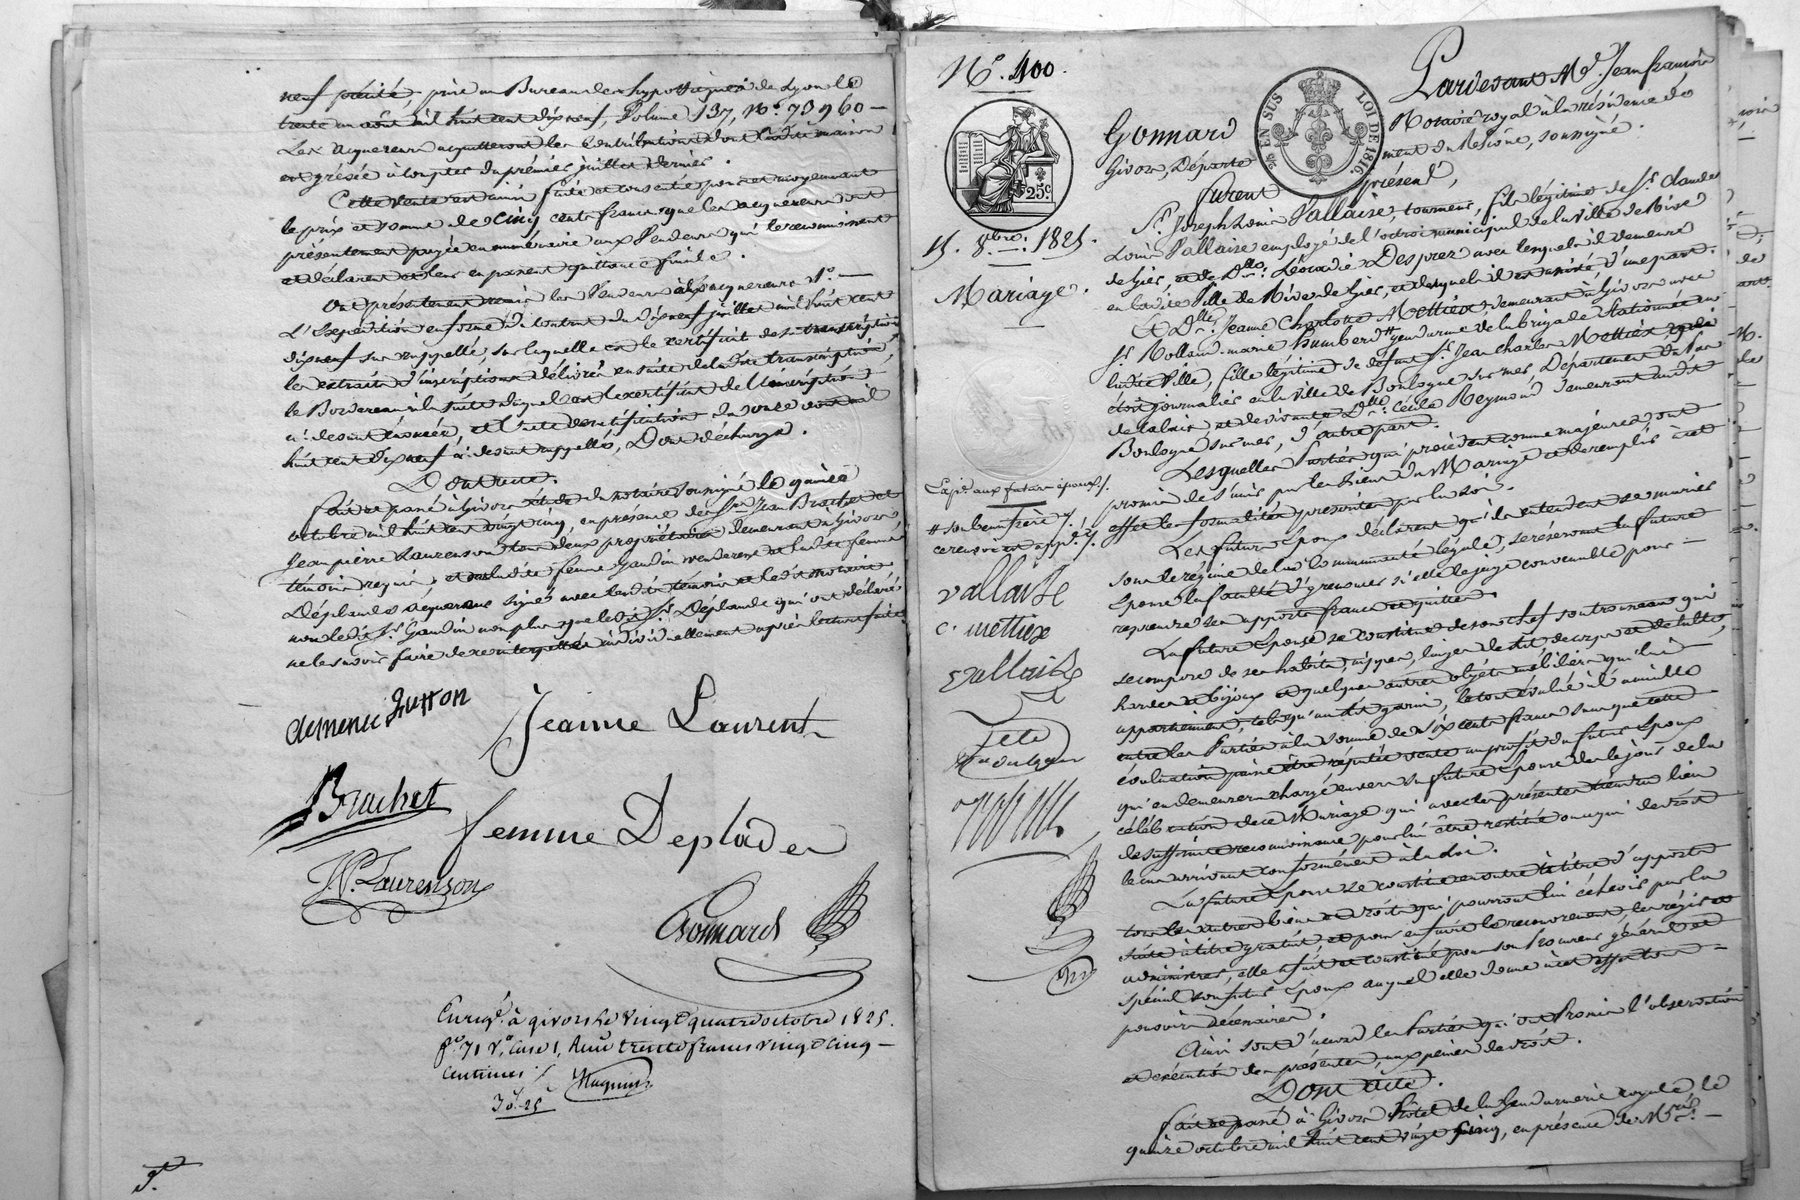 neuf précité, prise au Bureau des hypothèques de Lyon le
trente un août mil huit cent dix neuf, Volume 137, N° 73960 —
Les acquéreurs acquitteront les Contributions dont ladite maison
est grévée à compter du premier juillet dernier.
Cette vente est ainsi faite et consentie pour et moyennant
le prix et somme de cinq cents francs que les acquéreurs ont
présentement payée en numéraire aux Vendeurs qui le reconnaissent
et déclarent et leur en passent quittance finale.
Ont présentement remis les Vendeurs aux acquéreurs 1°. —
L'Expédition en forme du Contrat du dix neuf juillet mil huit cent
dix neuf sus rappellé, sur laquelle est le certificat de transcription
les extraits d'inscriptions délivrés ensuite de ladite transcription,
le Bordereau à la suite duquel est le certificat de l'inscription
ci-dessus énoncée, et l'acte de ratification du onze août mil
huit cent dix neuf ci-dessus rappellés, Dont décharge.
Dont acte.
Fait et passé à Givors étude du notaire soussigné le quinze
octobre mil huit cent vingt cinq, en présence de Srs Jean Brachet et
Jean pierre Laurenson tous deux propriétaires demeurant à Givors,
témoins requis, et ladite femme Gaudin venderesse et ladite femme
Déplande acquéreur signés avec lesdits témoins et ledit notaire
non ledit Sr Gaudin non plus que ledit Sr Déplande qui ont déclaré
ne le savoir faire de ce interpellés individuellement après lecture faite.
Jeanne Laurent
Brachet
femme Deplade
J. P. Laurenson
Gonnard
Enregé. à givors le vingt quatre octobre 1825.
f° 71 v° case 1, Reçu trente francs vingt cinq —
centimes
30-25
N° 400.
Pardevant Me Jean françois
EN SUS
LOI DE 1816
25c.
Gonnard
Notaire royal à la résidence de
Givors, Départe
ment du Rhône, soussigné.
furent
présens,
15. 8bre. 1825.
Mariage.
Sr. Joseph Louis Vallaise, tourneur, fils légitime de Sr. Claude
Louis Vallaise employé de l'octroi municipal de la Ville de Rive
de Gier, et de Dlle. Léocadie Desprez avec lesquels il demeure
en ladite Ville de Rive de Gier, et desquels il est assisté, d'une part.
Et Dlle. Jeanne Charlotte Mettiéx, demeurant à Givors avec
Sr. Rolland-marie Humbert # gendarme de la brigade stationnée en
ladite Ville, fille légitime de défunt Sr. Jean charles Mettiéx qui
étoit journalier en la ville de Boulogne sur mer, Département du Pas
de Calais et de vivante Dlle. Cécile Reymond demeurant audit
Boulogne sur mer, d'autre part.
Lesquelles Parties qui procèdent comme majeures, ont
Expé. aux futurs époux
promis de s'unir par les liens du Mariage et de remplir à cet
# son beau frère
effet les formalités prescrites par la Loi.
ce renvoi est app.é
Les futurs Epoux déclarent qu'ils entendent se marier
sous le régime de la Communauté légale, se réservant la future
Epouse la faculté d'y renoncer si elle le juge convenable pour —
reprendre ses apports francs et quittes.
vallaise
c. mettiex
La future Epouse se constitue de son chef son trousseau qui
se compose de ses habits, nippes, linges de lit, de corps et de table,
hardes et bijoux et quelques autres objets mobiliers qui lui
appartiennent, tels qu'un lit garni, le tout évalué à l'amiable
entre les Parties à la somme de six cents francs sans que cette
évaluation puisse être réputée vente au profit du futur Epoux
qui en demeurera chargé envers sa future Epouse dès le jour de la
célébration de ce Mariage qui avec les présentes tiendra lieu
de suffisante reconnoissance pour lui être restitué ou à qui de droit
le cas arrivant conformément à la Loi.
La future Epouse se constitue en outre à titre d'apport
tous les autres biens et droits qui pourront lui échoir par la
suite à titre gratuit, et pour en faire le recouvrement, les régir et
administrer, elle a fait et constitué pour son Procureur général et
spécial son futur Epoux auquel elle donne à cet effet tous —
pouvoirs nécessaires.
Ainsi sont d'accord les Parties qui ont promis l'observation
et exécution des présentes, aux peines de droit.
Dont acte.
Fait et passé à Givors hôtel de la Gendarmerie royale le
quinze octobre mil huit cent vingt cinq, en présence de Mrs. —